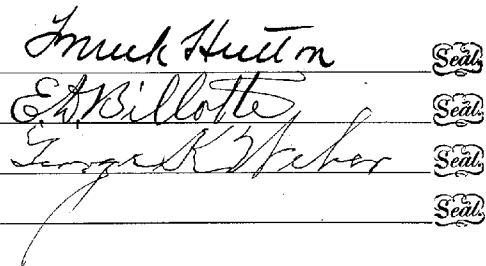 Hutton Seal.
E. D. Billotte Seal.
George K Weber Seal.
Seal.